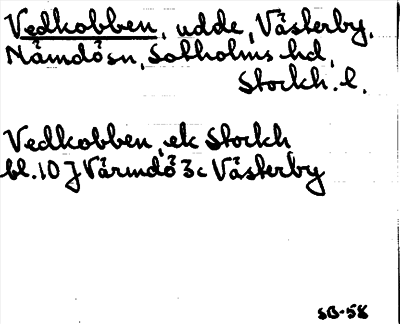 Vedkobben, udde, Västerby,
Nämdö sn, Sotholms hd,
Stockh. l.
Vedkobben, ek Stockh
bl. 10 J Värmdö 3c Västerby
SB-58